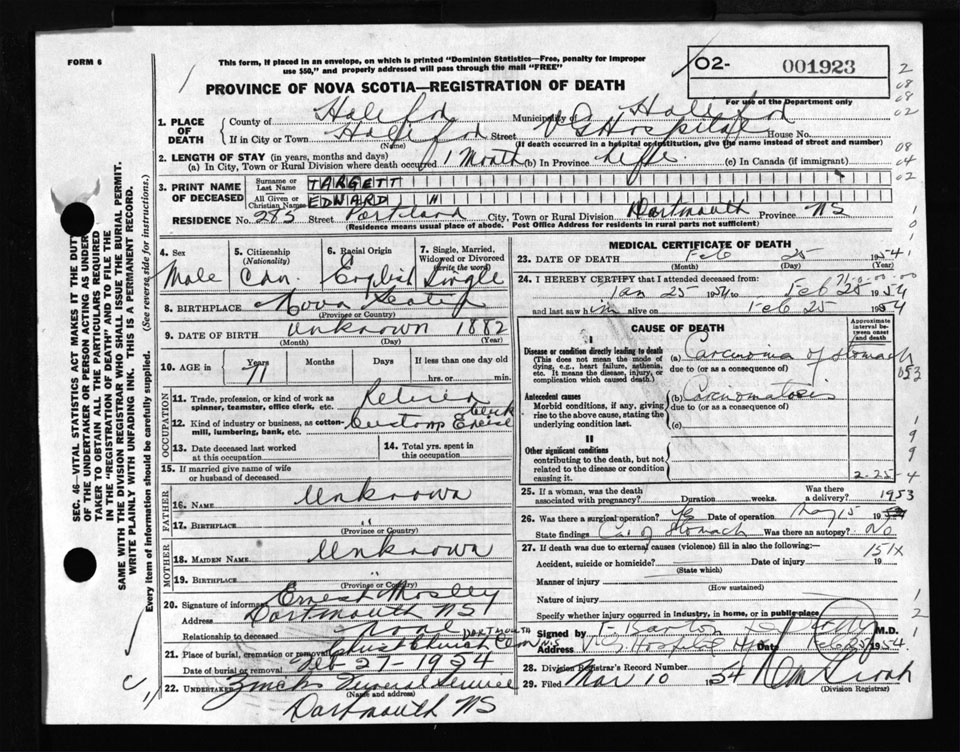 FORM 6
This form, if placed in an envelope, on which is printed "Dominion Statistics—Free, penalty for improper
use $50," and properly addressed will pass through the mail "FREE"
02- 001923
PROVINCE OF NOVA SCOTIA—REGISTRATION OF DEATH
For use of the Department only
1. PLACE OF DEATH
County of Halifax Municipality of Halifax
If in City or Town Halifax Street VG Hospital House No.
(Name) (If death occurred in a hospital or institution, give the name instead of street and number)
2. LENGTH OF STAY (in years, months and days)
(a) In City, Town or Rural Division where death occurred 1 Month (b) In Province Life (c) In Canada (if immigrant)
3. PRINT NAME OF DECEASED
Surname or Last Name TARGETT
All Given or Christian Names EDWARD H
RESIDENCE No. 285 Street Portland City, Town or Rural Division Dartmouth Province NS
(Residence means usual place of abode. Post Office Address for residents in rural parts not sufficient)
4. Sex Male
5. Citizenship (Nationality) Can
6. Racial Origin English
7. Single, Married, Widowed or Divorced (write the word) Single
8. BIRTHPLACE Nova Scotia
(Province or Country)
9. DATE OF BIRTH unknown 1882
(Month) (Day) (Year)
10. AGE in Years 71 Months Days If less than one day old
hrs. or min.
OCCUPATION
11. Trade, profession, or kind of work as spinner, teamster, office clerk, etc. Retired
12. Kind of industry or business, as cotton-mill, lumbering, bank, etc. Customs Clerk
13. Date deceased last worked at this occupation
14. Total yrs. spent in this occupation
15. If married give name of wife or husband of deceased
FATHER
16. NAME Unknown
17. BIRTHPLACE "
(Province or Country)
MOTHER
18. MAIDEN NAME Unknown
19. BIRTHPLACE "
(Province or Country)
20. Signature of informant Ernest Mosley
Address Dartmouth NS
Relationship to deceased
21. Place of burial, cremation or removal Christ Church Cem DARTMOUTH
Date of burial or removal Feb 27-1954
22. UNDERTAKER Zinck's Funeral Service
(Name and address)
Dartmouth NS
MEDICAL CERTIFICATE OF DEATH
23. DATE OF DEATH Feb 25 1954
(Month) (Day) (Year)
24. I HEREBY CERTIFY that I attended deceased from:
Jan 25 1954 to Feb 25 1954
and last saw him alive on Feb 25 1954
CAUSE OF DEATH
Approximate interval between onset and death
I
Disease or condition directly leading to death (a) Carcinoma of Stomach
(This does not mean the mode of dying, e.g., heart failure, asthenia, etc. It means the disease, injury, or complication which caused death.)
due to (or as a consequence of)
Antecedent causes (b) Carcinomatosis
Morbid conditions, if any, giving rise to the above cause, stating the underlying condition last.
due to (or as a consequence of)
(c)
II
Other significant conditions
contributing to the death, but not related to the disease or condition causing it.
2-25-4
25. If a woman, was the death associated with pregnancy? Duration weeks. Was there a delivery?
1953
26. Was there a surgical operation? Date of operation May 15 19
State findings Ca. of Stomach Was there an autopsy? No
27. If death was due to external causes (violence) fill in also the following:—
151X
Accident, suicide or homicide? Date of injury 19
(State which)
Manner of injury
(How sustained)
Nature of injury
Specify whether injury occurred in industry, in home, or in public place
Signed by M.D.
Address V.G. Hospital Hfx Date Feb 25 1954
28. Division Registrar's Record Number
29. Filed Mar 10 1954
(Division Registrar)
SEC. 46—VITAL STATISTICS ACT MAKES IT THE DUTY
OF THE UNDERTAKER OR PERSON ACTING AS UNDER-
TAKER TO OBTAIN ALL THE PARTICULARS REQUIRED
IN THE "REGISTRATION OF DEATH" AND TO FILE THE
SAME WITH THE DIVISION REGISTRAR WHO SHALL ISSUE THE BURIAL PERMIT.
WRITE PLAINLY WITH UNFADING INK. THIS IS A PERMANENT RECORD.
Every item of information should be carefully supplied. (See reverse side for instructions.)